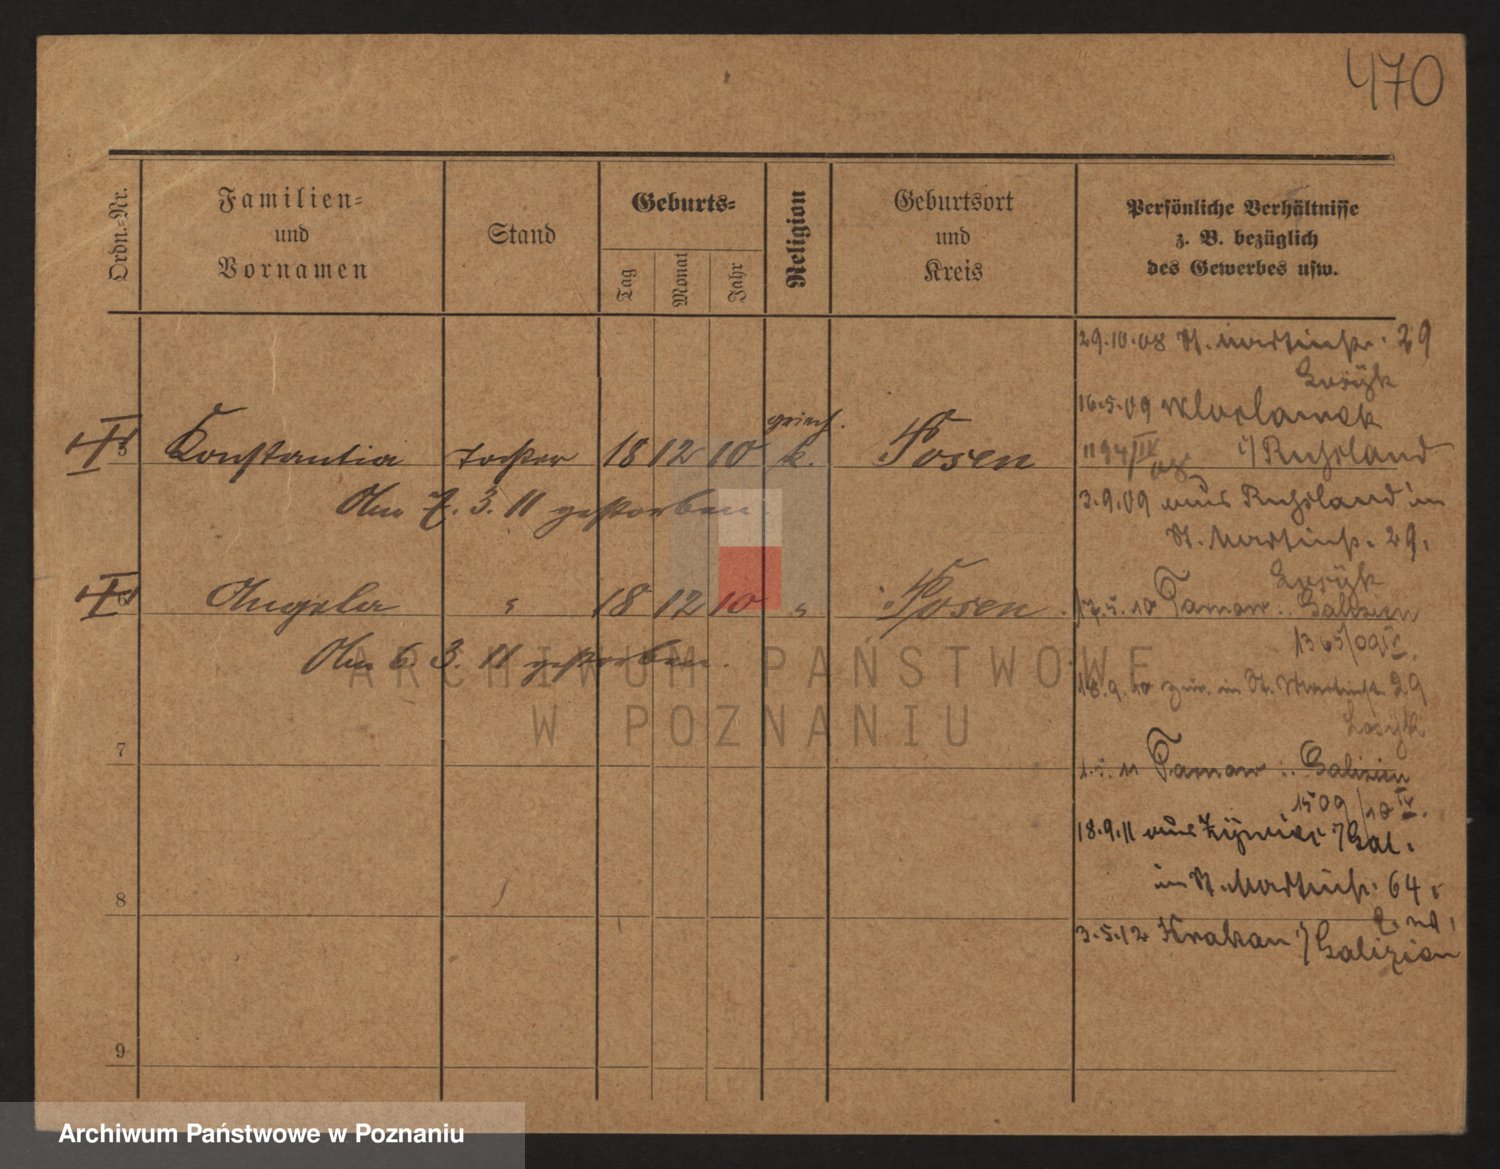 470
Ordn.-Nr.
Familien-
und
Vornamen
Stand
Geburts-
Tag
Monat
Jahr
Religion
Geburtsort
und
Kreis
Persönliche Verhältnisse
z. B. bezüglich
des Gewerbes usw.
5 Konstantia Tochter 18 12 10 griech. k. Posen
Am 7. 3. 11 gestorben.
6 Angela " 18 12 10 " Posen.
Am 6. 3. 11 gestorben.
7
8
9
29.10.08 St. Martinstr. 29
16.5.09
i/Russland
3.9.09 aus Russland in
St. Martinstr. 29.
17.5.10 Galizien
1365/09 IV.
18.9.10 zur. in St. Martinstr. 29
1.5.11 Galizien
1509/10 IV.
18.9.11 aus i/Gal.
in St. Martinstr. 64.
3.5.12 Krakau i/Galizien
ARCHIWUM PAŃSTWOWE
W POZNANIU
Archiwum Państwowe w Poznaniu